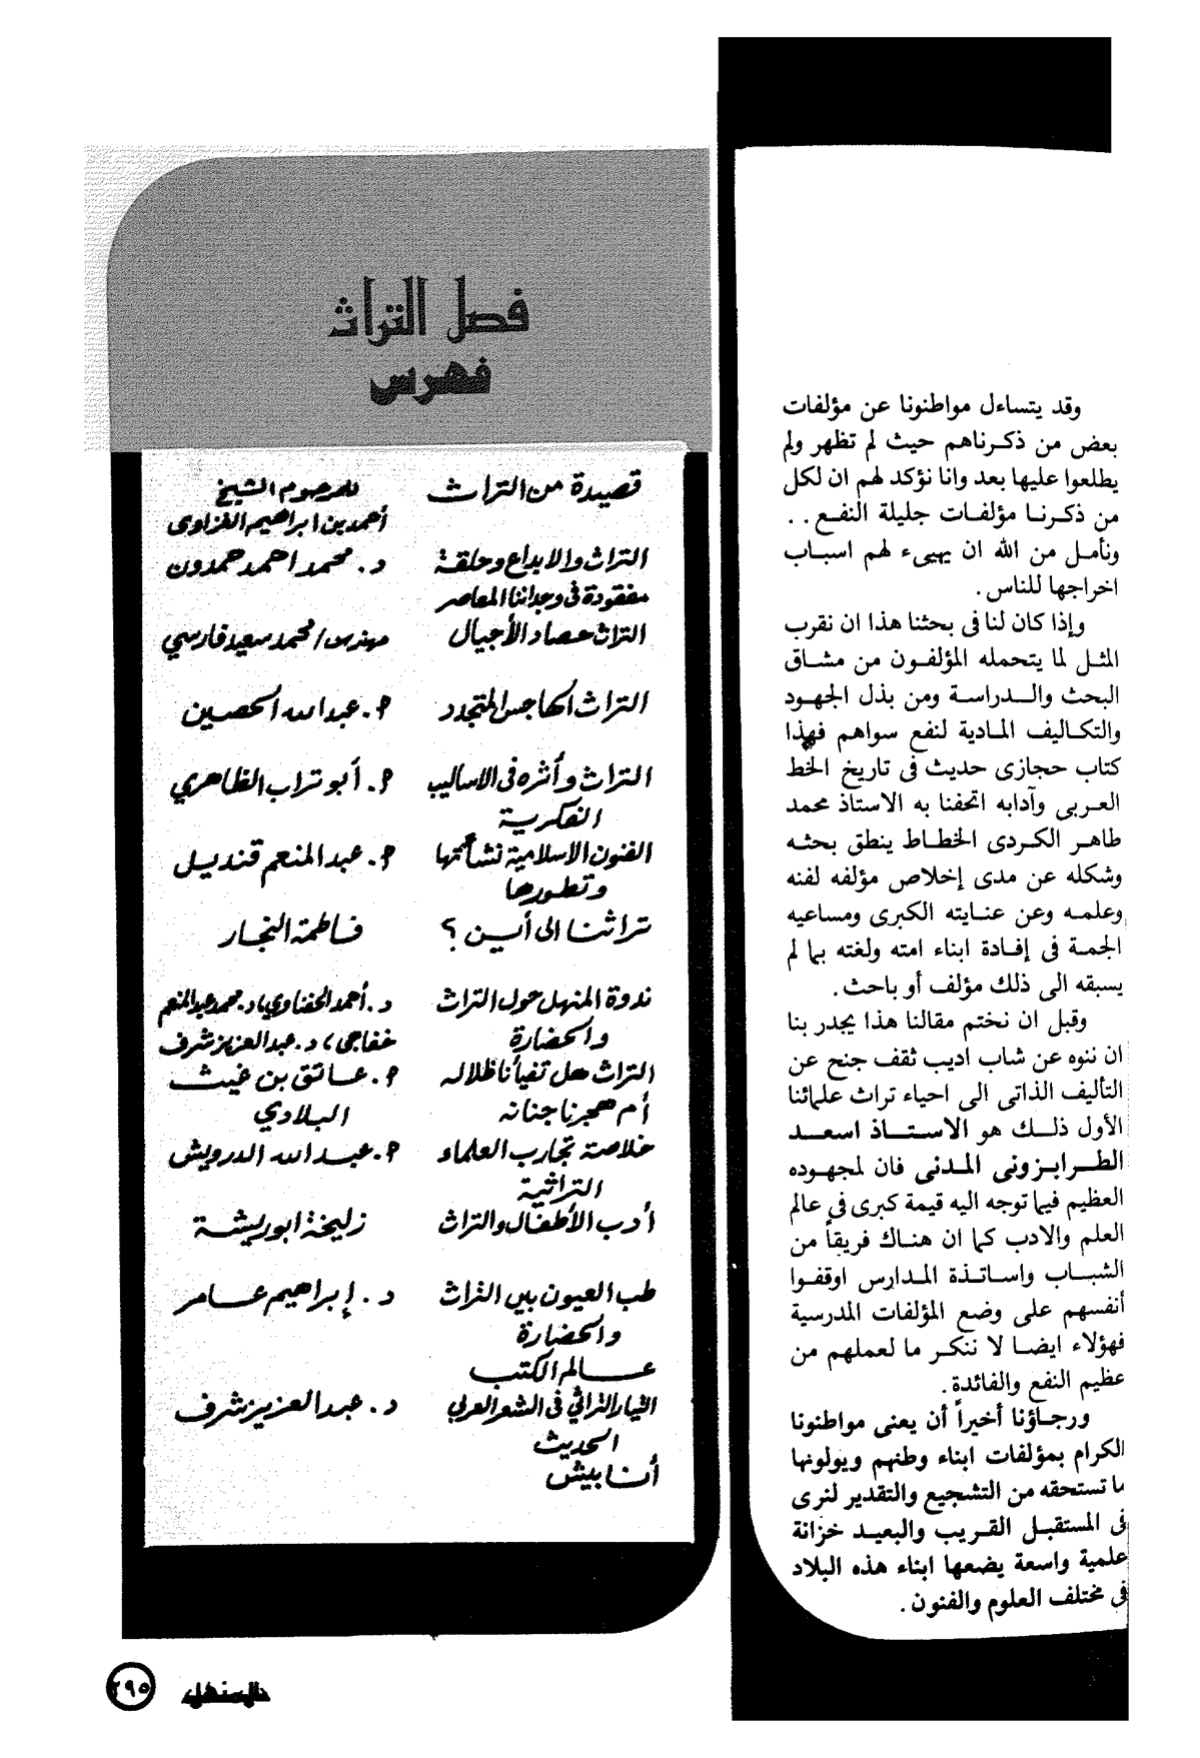 وقد يتساءل مواطنونا عن مؤلفات
بعض من ذكرناهم حيث لم تظهر ولم
يطلعوا عليها بعد وانا نؤكد لهم ان لكل
من ذكرنا مؤلفات جليلة النفع . .
ونأمل من الله ان يهيىء لهم اسباب
اخراجها للناس .
وإذا كان لنا فى بحثنا هذا ان نقرب
المثل لما يتحمله المؤلفون من مشاق
البحث والدراسة ومن بذل الجهود
والتكاليف المادية لنفع سواهم فهذا
كتاب حجازى حديث فى تاريخ الخط
العربى وآدابه اتحفنا به الاستاذ محمد
طاهر الكردى الخطاط ينطق بحثه
وشكله عن مدى إخلاص مؤلفه لفنه
وعلمه وعن عنايته الكبرى ومساعيه
الجمة فى إفادة ابناء امته ولغته بما لم
يسبقه الى ذلك مؤلف أو باحث .
وقبل ان نختم مقالنا هذا يجدر بنا
ان ننوه عن شاب اديب ثقف جنح عن
التأليف الذاتى الى احياء تراث علمائنا
الأول ذلك هو الاستاذ اسعد
الطرابزونى المدنى فان لمجهوده
العظيم فيما توجه اليه قيمة كبرى فى عالم
العلم والادب كما ان هناك فريقاً من
الشباب واساتذة المدارس اوقفوا
أنفسهم على وضع المؤلفات المدرسية
فهؤلاء ايضا لا ننكر ما لعملهم من
عظيم النفع والفائدة .
ورجاؤنا أخيراً أن يعنى مواطنونا
الكرام بمؤلفات ابناء وطنهم ويولونها
ما تستحقه من التشجيع والتقدير لنرى
فى المستقبل القريب والبعيد خزانة
علمية واسعة يضعها ابناء هذه البلاد
فى مختلف العلوم والفنون .
فصل التراث
فهرس
قصيدة من التراث للمرحوم الشيخ
أحمد بن ابراهيم الغزاوى
التراث والابداع وحلقة د. محمد احمد حمدون
مفقودة فى وجداننا المعاصر
التراث حصاد الأجيال مهندس / محمد سعيد فارسي
التراث الهاجس المتجدد أ. عبدالله الحصين
التراث وأثره فى الاساليب أ. أبو تراب الظاهري
الفكرية
الفنون الاسلامية نشأتها أ. عبدالمنعم قنديل
وتطورها
تراثنا الى أين ؟ فاطمة النجار
ندوة المنهل حول التراث د. أحمد الحفناوي، د. محمد عبدالمنعم
والحضارة خفاجى، د. عبدالعزيز شرف
التراث هل تفيأنا ظلاله أ. عاتق بن غيث
أم هجرنا جنانه البلادي
خلاصة تجارب العلماء أ. عبدالله الدرويش
التراثية
أدب الأطفال والتراث زليخة ابوريشة
طب العيون بين التراث د. إبراهيم عامر
والحضارة
عالم الكتب
التيار التراثي فى الشعر العربي د. عبدالعزيز شرف
الحديث
أنابيش
المنهل ٢٩٥